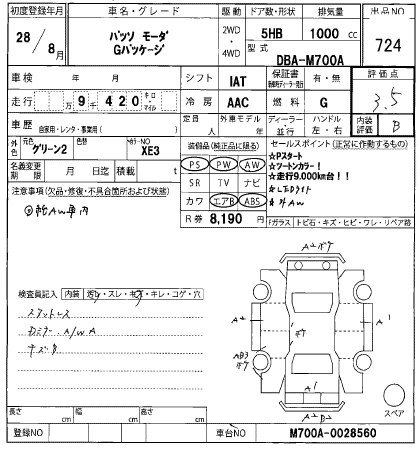 初度登録年月
28/8月
車名・グレード
パッソ モーダ
Gパッケージ
駆動
2WD
・
4WD
ドア数・形状
5HB
排気量
1000 cc
型式
DBA-M700A
出品NO
724
車検
年 月
シフト
IAT
保証書
有・無
評価点
3.5
走行
月 9千420
キロ・マイル
冷房
AAC
燃料
G
車歴
自家用・レンタ・事業用( )
定員
人
外車モデル
年
ディーラー・並行
ハンドル
左・右
内装評価
B
外色
元色
グリーン2
色替
カラーNO
XE3
装備品(純正品に限る)
PS PW AW
SR TV ナビ
カワ エアB ABS
R券 8,190 円
セールスポイント(正常に動作するもの)
☆Pスタート
☆ツートンカラー!
☆走行9.000km台!
☆LEDライト
名義変更期限
月 日迄
積載
t
注意事項(欠品・修復・不具合箇所および状態)
Fガラス トビ石・キズ・ヒビ・ワレ・リペア跡
検査員記入
内装
スレ・キズ・キレ・コゲ・穴
スペア
長さ cm
幅 cm
高さ cm
登録NO
車台NO
M700A-0028560
A2
A1
A1
A2 B2